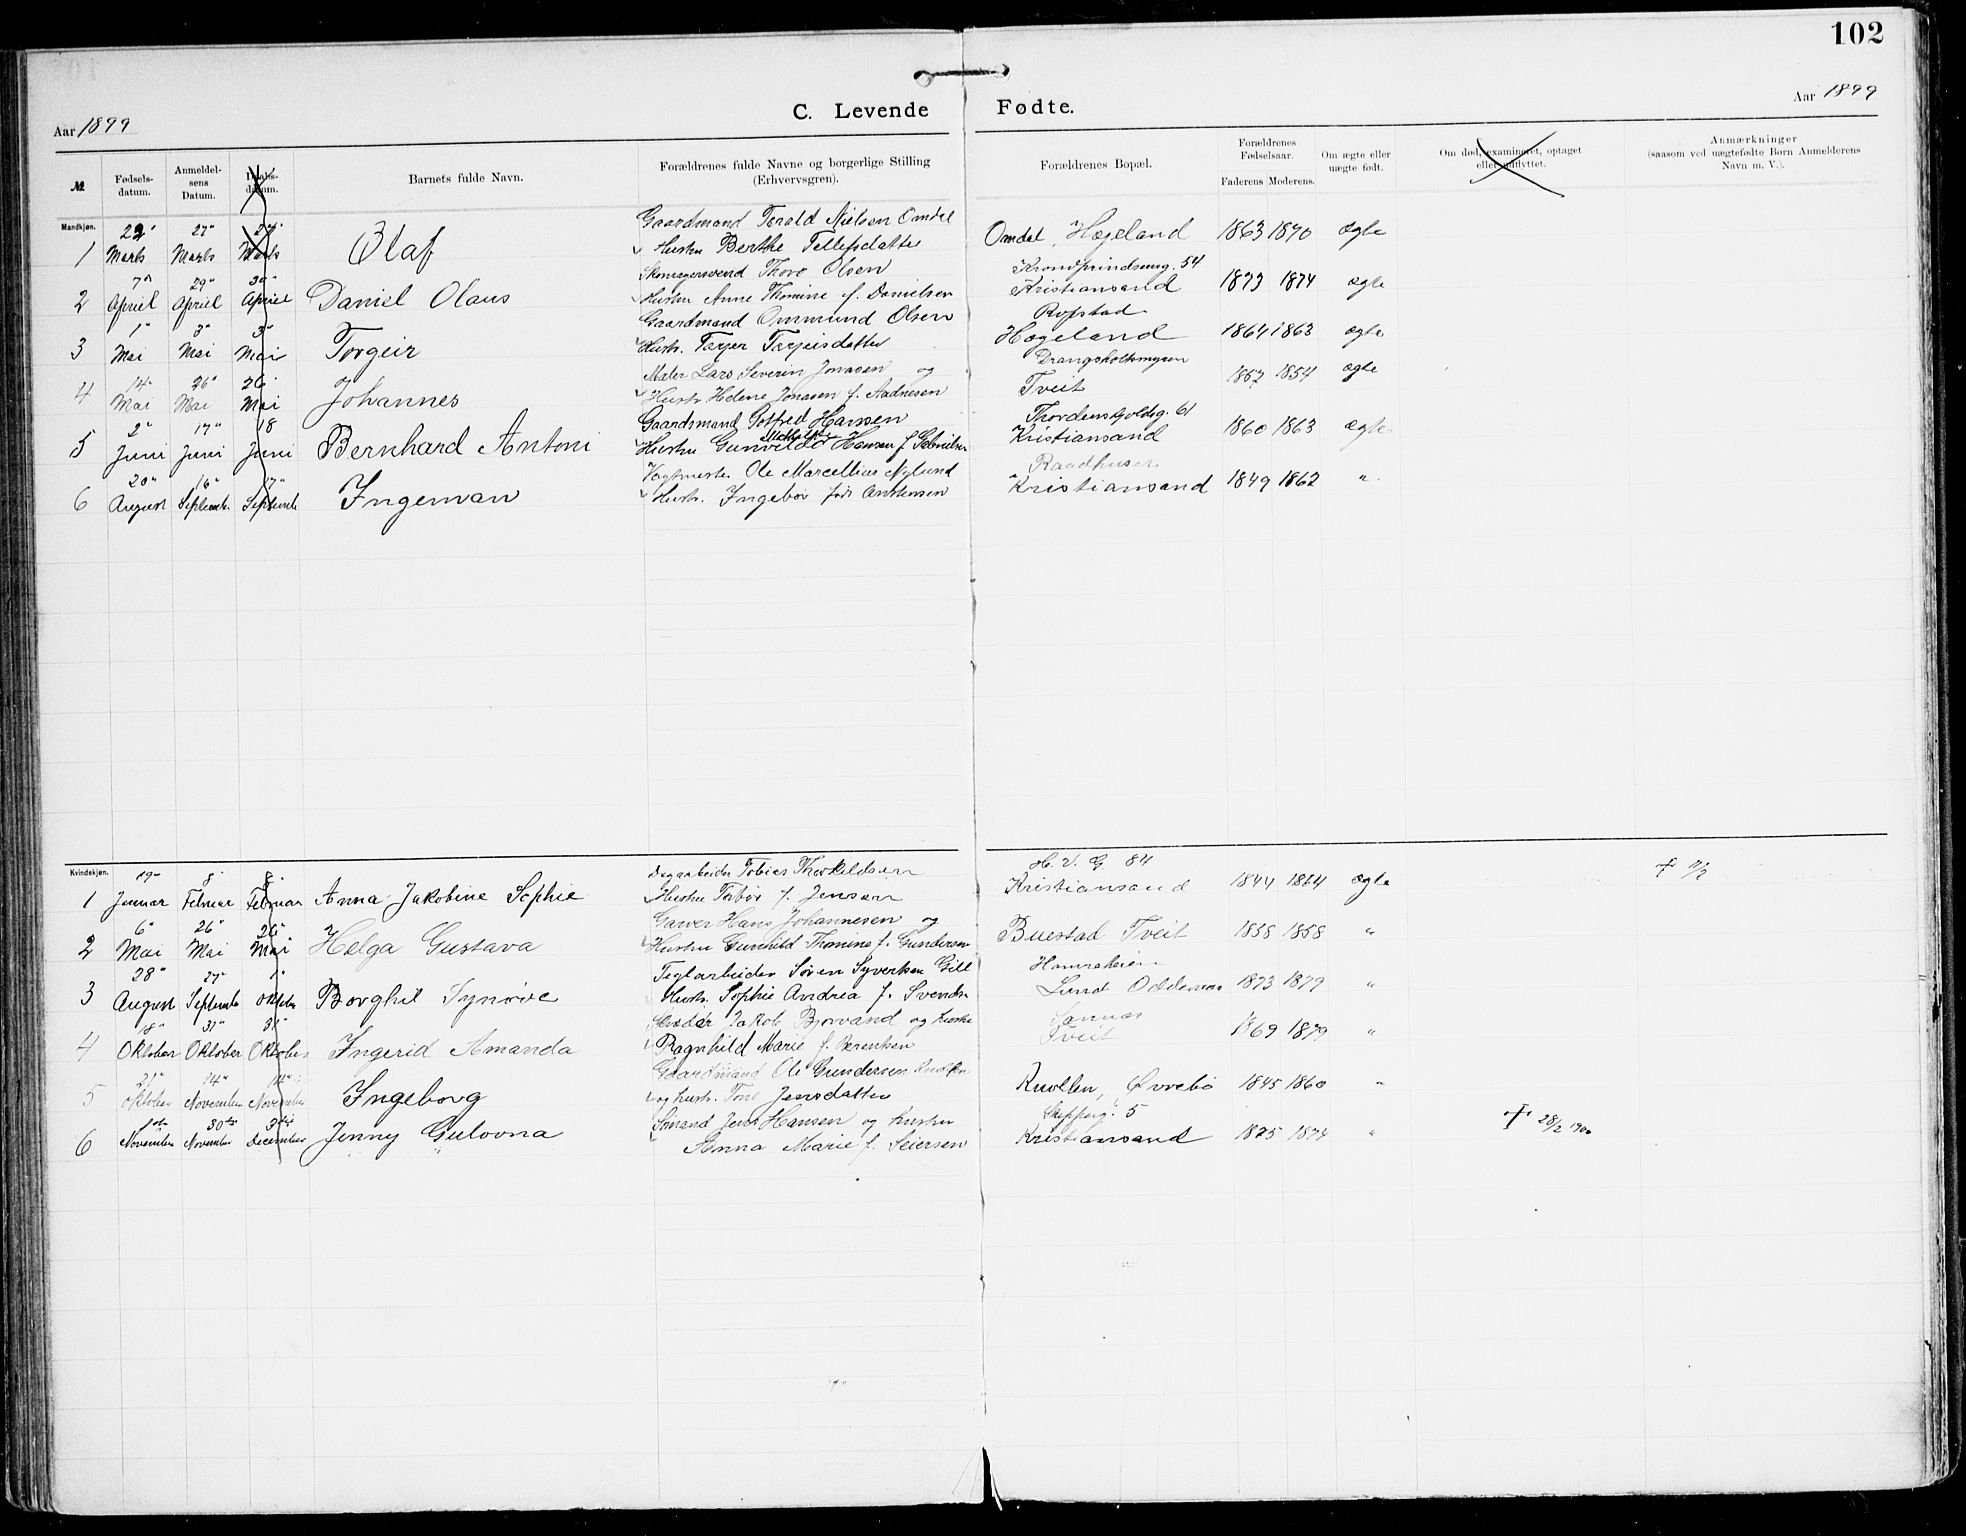 102
Aar 1899
C. Levende Fødte.
Aar 1899
№
Fødsels-datum.
Anmeldel-sens Datum.
Barnets fulde Navn.
Forældrenes fulde Navne og borgerlige Stilling (Erhvervsgren).
Forældrenes Bopæl.
Forældrenes Fødselsaar.
Faderens Moderens.
Om ægte eller uægte født.
Om død, examineret, optaget eller udflyttet.
Anmærkninger (saasom ved uægtefødte Børn Anmelderens Navn m. V.).
Mandkjøn.
Gaardmand Torald Nielsen Omdal
1 Marts 27" Marts Marts Olaf Hustru Berthe Tellefsdatter Omdal, Hægeland 1863 1870 ægte
Skomagersvend Thore Olsen Krondprindsensg. 54
2 7" April 29" April 30" April Daniel Olaus Hustru Anne Thomine f. Danielsen Kristiansand 1873 1874 ægte
Gaardmand Ommund Olsen Ropstad
3 1" Mai 3" Mai 3" Mai Torgeir Hustr. Tarjer Tarjeisdatter Hægeland 1864 1863 ægte
Maler Lars Severin Jonasen og Drangsholtsmyren
4 14" Mai 26" Mai 26" Mai Johannes Hustr. Helene Jonasen f. Aadnesen Tveit 1857 1854 ægte
Gaardsmand Gotfred Hansen 61
5 2" Juni 17" Juni 18 Juni Bernhard Antoni Hustru Hansen f. Kristiansand 1860 1863 ægte
Vagtmester Ole Marcellius Nylund Raadhuset
6 20" August 16" Septemb. 17" Septemb Ingeman Hustr. Ingebor født Anstensen Kristiansand 1849 1862 "
Kvindekjøn.
Dagarbeider Tobias Thorkildsen H. V. G 84
1 19" Januar 8" Februar 8" Februar Anna Jakobine Sophie Hustru Torbor f. Jensen Kristiansand 1844 1864 ægte
Garver Hans Johannesen og
2 6" Mai 26" Mai 26" Mai Helga Gustava Hustru Gunhild Thomine f. Gundersen Buestad Tveit 1858 1858 "
Teglarbeider Søren Syvertsen Gill
3 28" August 27" Septemb 1" Oktober Borghil Synøve Hustr. Sophie Andrea f. Svends. Lund Oddernes 1873 1879 "
Jakob Bjorvand og hustru
4 18" Oktober 31" Oktober 31" Oktober Ingerid Amanda Ragnhild Marie f. Berentsen Tveit 1869 1879 "
Gaardmand Ole Gundersen
5 Oktober 14" November 14" November Ingeborg og hustr. Tone Jensdatter Knollen, Øvrebø 1845 1860 "
Sømand Jens Hansen og hustru Skipperg. 5
6 November 30te November December Jenny Gulovna Anna Marie f. Seiersen Kristiansand 1875 1874 " † 28/2 1900